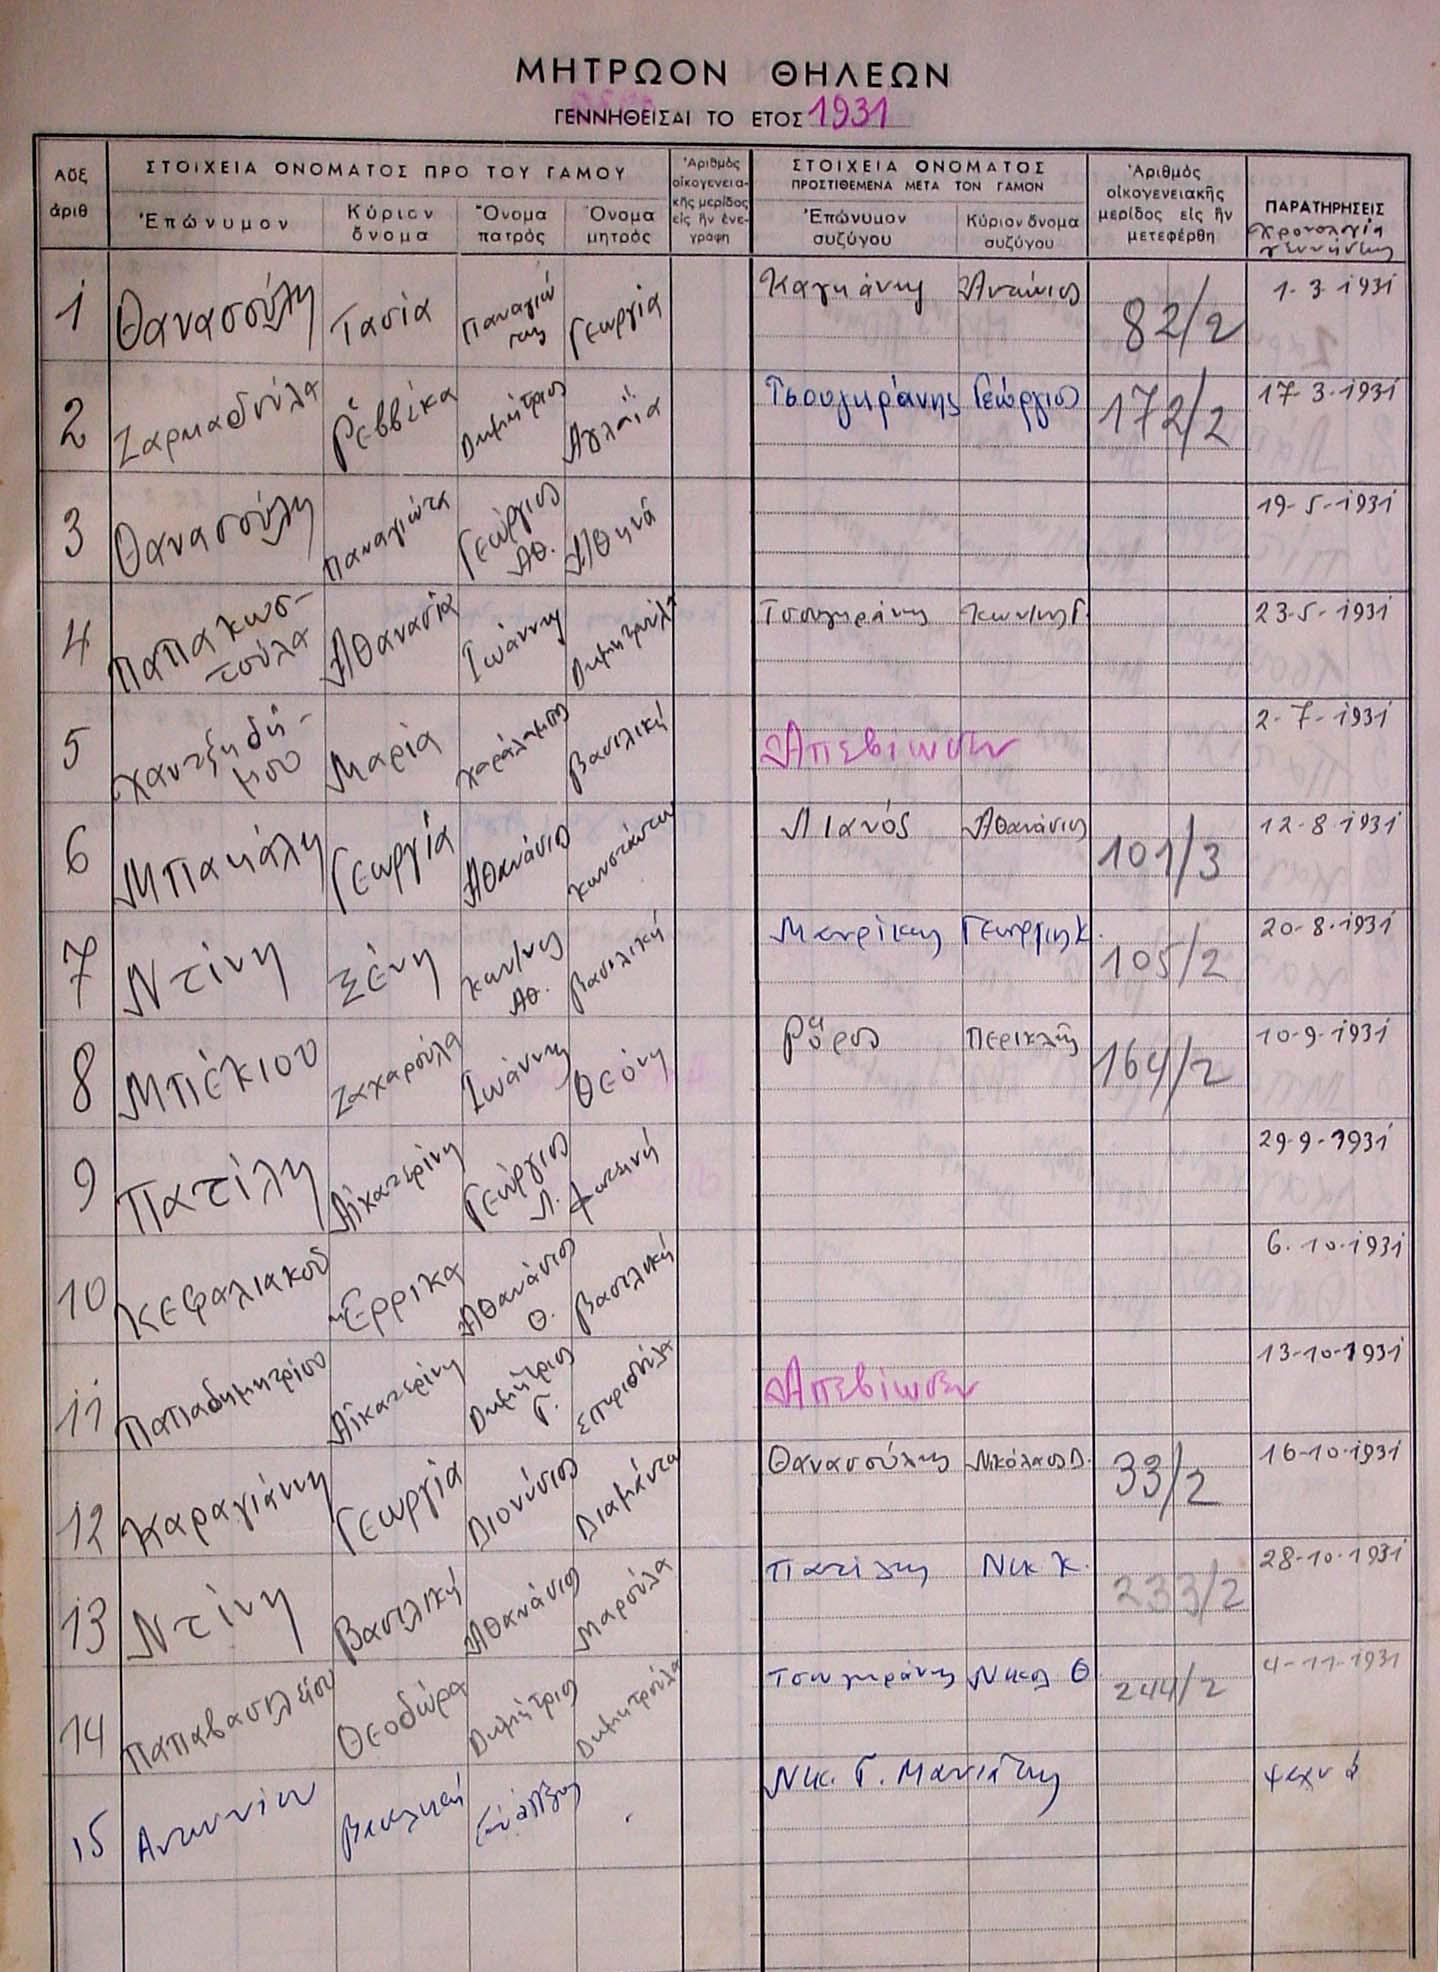 ΜΗΤΡΩΟΝ ΘΗΛΕΩΝ
ΓΕΝΝΗΘΕΙΣΑΙ ΤΟ ΕΤΟΣ 1931
Αὔξ ἀριθ ΣΤΟΙΧΕΙΑ ΟΝΟΜΑΤΟΣ ΠΡΟ ΤΟΥ ΓΑΜΟΥ Ἀριθμὸς οἰκογενειακῆς μερίδος εἰς ἣν ἐνεγράφη ΣΤΟΙΧΕΙΑ ΟΝΟΜΑΤΟΣ ΠΡΟΣΤΙΘΕΜΕΝΑ ΜΕΤΑ ΤΟΝ ΓΑΜΟΝ Ἀριθμὸς οἰκογενειακῆς μερίδος εἰς ἣν μετεφέρθη ΠΑΡΑΤΗΡΗΣΕΙΣ χρονολογία γεννήσεως
Ἐπώνυμον Κύριον ὄνομα Ὄνομα πατρός Ὄνομα μητρός Ἐπώνυμον συζύγου Κύριον ὄνομα συζύγου
1 Θανασούλη Τασία Παναγιώτης Γεωργία Αντώνιος 82/2 1-3-1931
2 Ζαρμαδούλα Ρεββέκα Δημήτριος Αγλαΐα Τσουγκράνης Γεώργιος 172/2 17-3-1931
3 Θανασούλη Παναγιώτα Γεώργιος Αθ. Αθηνά 19-5-1931
4 Παπακωστούλα Αθανασία Ιωάννης Δημητρούλα Τσουγκράνης Κων/νος Γ. 23-5-1931
5 Χαντζηδήμου Μαρία Χαράλαμπος Βασιλική Απεβίωσεν 2-7-1931
6 Μπακάλη Γεωργία Αθανάσιος Κωνστάντω Λιανός Αθανάσιος 101/3 12-8-1931
7 Ντίνη Ξένη Κων/νος Αθ. Βασιλική Μαυρίκης Γεώργιος Κ. 105/2 20-8-1931
8 Μπέκιου Ζαχαρούλα Ιωάννης Θεόνη Περικλῆς 164/2 10-9-1931
9 Πατίλη Αἰκατερίνη Γεώργιος Λ. Φωτεινή 29-9-1931
10 Κεφαλιακού Ἐρρικα Αθανάσιος Θ. Βασιλική 6-10-1931
11 Παπαδημητρίου Αἰκατερίνη Δημήτριος Γ. Σπυριδούλα Απεβίωσεν 13-10-1931
12 Καραγιάννη Γεωργία Διονύσιος Διαμάντω Θανασούλης Νικόλαος Δ. 33/2 16-10-1931
13 Ντίνη Βασιλική Αθανάσιος Μαρούλα Πατίλης Νικ Κ. 233/2 28-10-1931
14 Παπαβασιλείου Θεοδώρα Δημήτριος Δημητρούλα Τσουγκράνης Νικολ Θ. 244/2 4-11-1931
15 Αντωνίου Βασιλική Νικ. Γ. Μανιάτης